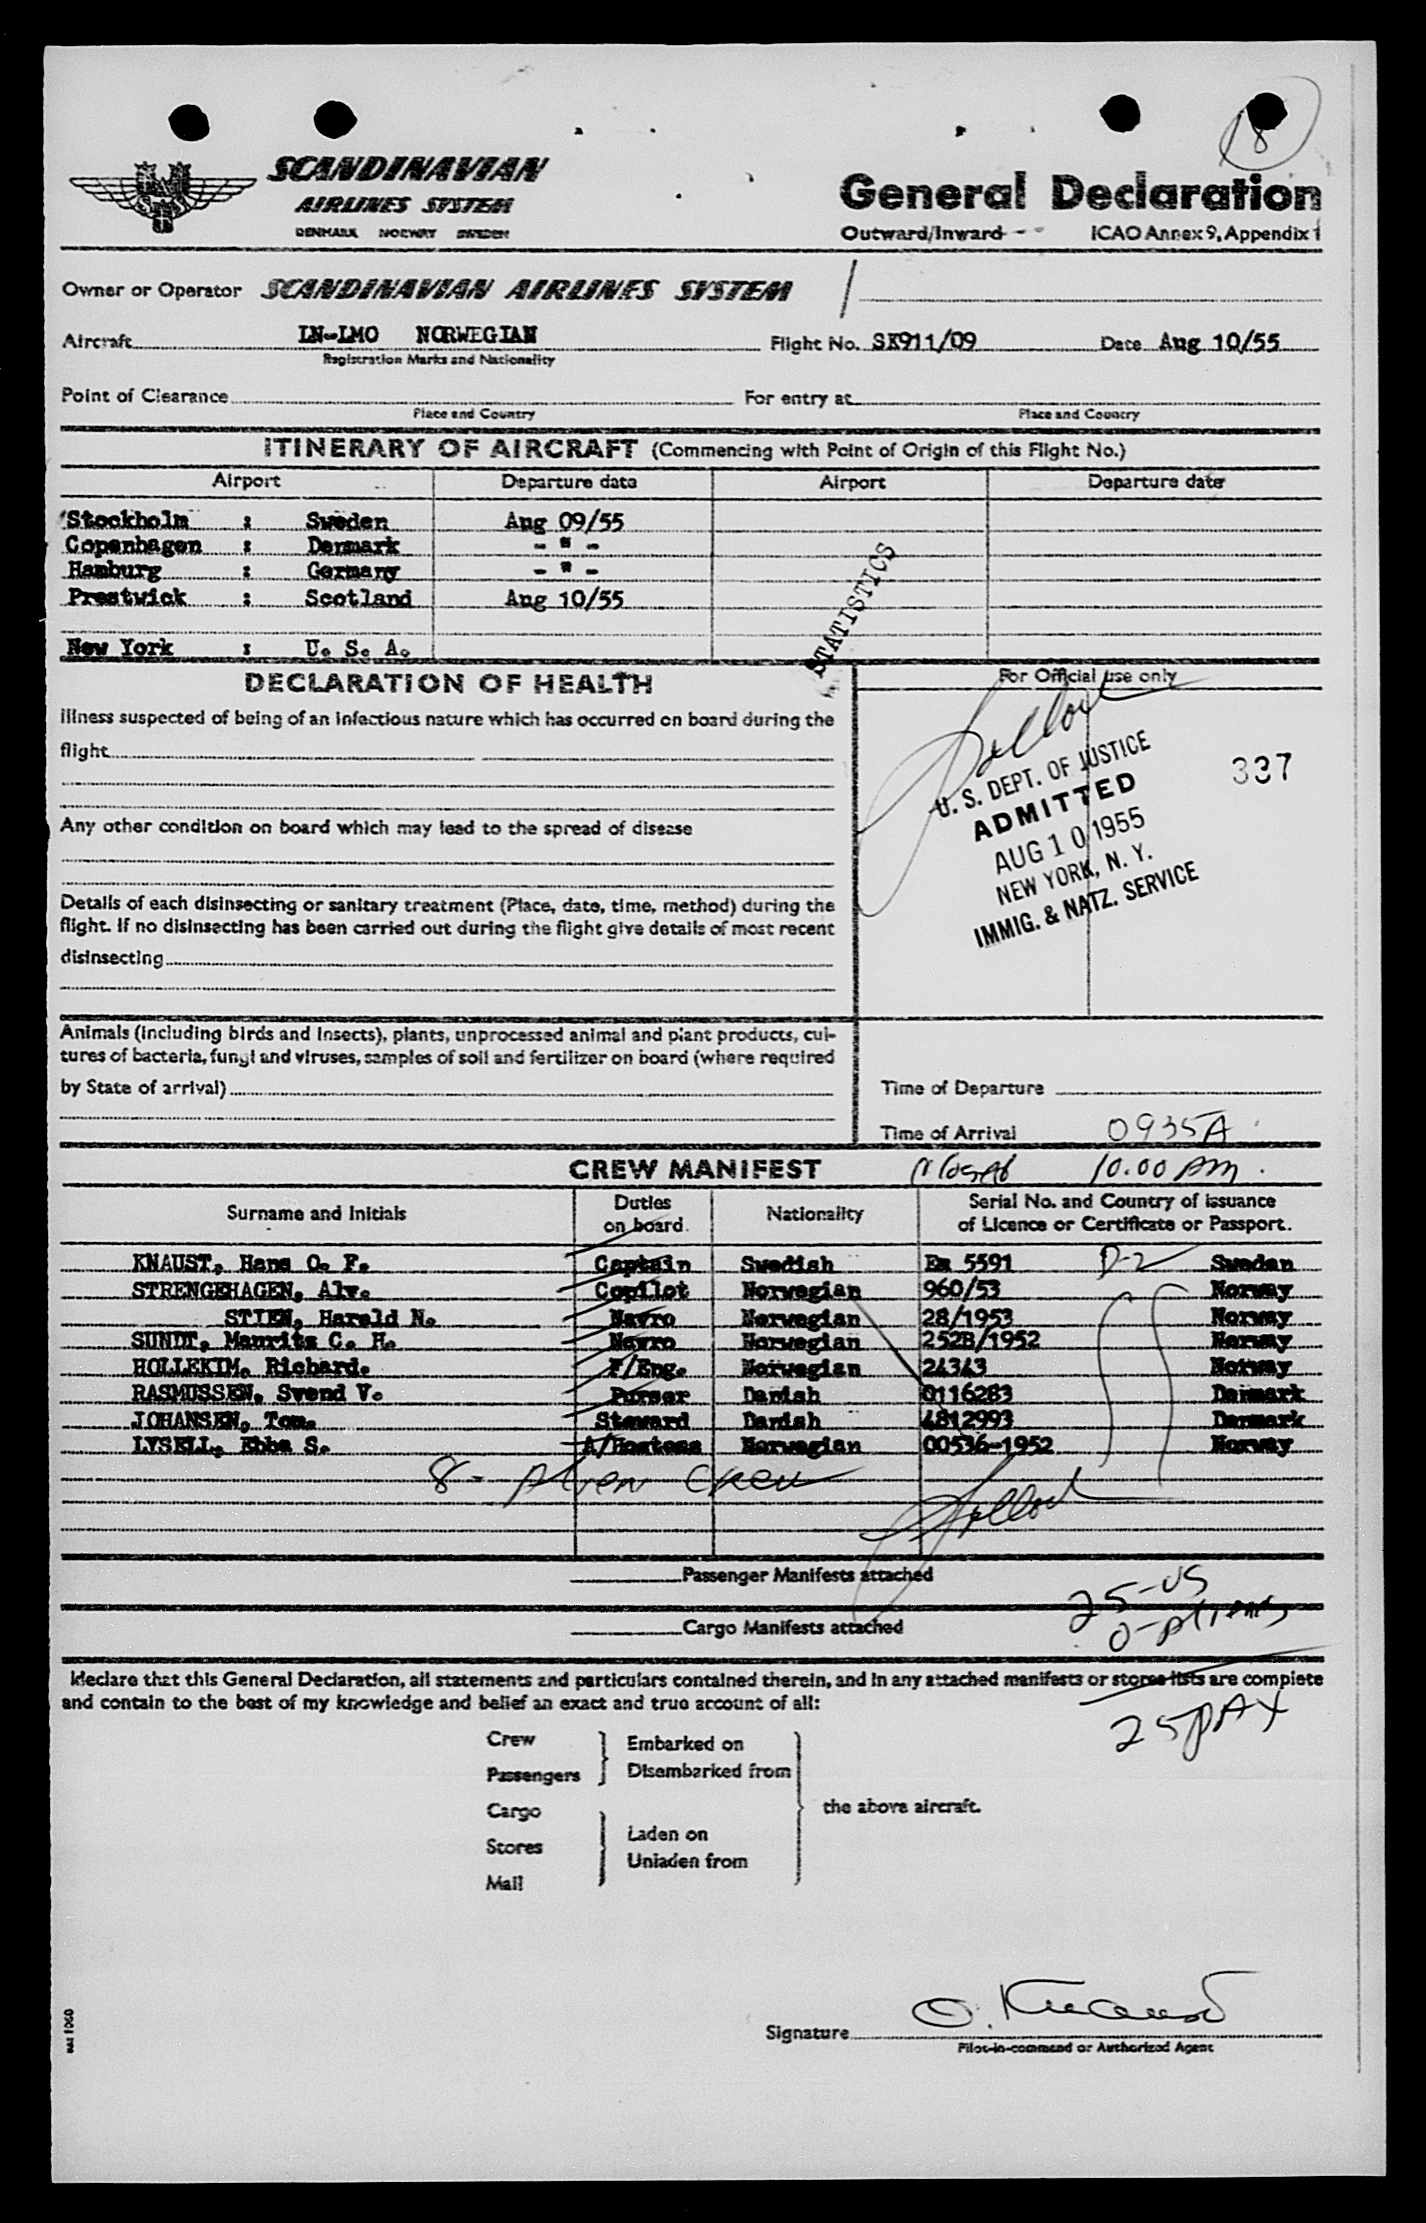 18
SCANDINAVIAN
AIRLINES SYSTEM
DENMARK NORWAY SWEDEN
General Declaration
Outward/Inward ICAO Annex 9, Appendix 1
Owner or Operator SCANDINAVIAN AIRLINES SYSTEM
Aircraft LN-LMO NORWEGIAN Flight No. SK911/09 Date Aug 10/55
Registration Marks and Nationality
Point of Clearance For entry at
Place and Country Place and Country
ITINERARY OF AIRCRAFT (Commencing with Point of Origin of this Flight No.)
Airport Departure date Airport Departure date
Stockholm : Sweden Aug 09/55
Copenhagen : Denmark - " -
Hamburg : Germany - " -
Prestwick : Scotland Aug 10/55
New York : U. S. A.
STATISTICS
DECLARATION OF HEALTH
Illness suspected of being of an infectious nature which has occurred on board during the
flight
Any other condition on board which may lead to the spread of disease
Details of each disinsecting or sanitary treatment (Place, date, time, method) during the
flight. If no disinsecting has been carried out during the flight give details of most recent
disinsecting
For Official use only
U. S. DEPT. OF JUSTICE
ADMITTED
AUG 10 1955
NEW YORK, N. Y.
IMMIG. & NATZ. SERVICE
337
Animals (including birds and insects), plants, unprocessed animal and plant products, cul-
tures of bacteria, fungi and viruses, samples of soil and fertilizer on board (where required
by State of arrival)
Time of Departure
Time of Arrival 0935A
CREW MANIFEST 10.00 AM
Surname and Initials Duties on board Nationality Serial No. and Country of issuance of Licence or Certificate or Passport.
KNAUST, Hans O. F. Captain Swedish Em 5591 D-2 Sweden
STRENGEHAGEN, Alv. Copilot Norwegian 960/53 Norway
STIEN, Harald N. Navro Norwegian 28/1953 Norway
SUNDT, Mauritz C. H. Navro Norwegian 252B/1952 Norway
HOLLEKIM, Richard. F/Eng. Norwegian 24343 Norway
RASMUSSEN, Svend V. Purser Danish 0116283 Denmark
JOHANSEN, Tom. Steward Danish 4812993 Denmark
LYSELL, Ebba S. A/Hostess Norwegian 00536-1952 Norway
8 - Alien Crew
Passenger Manifests attached
25-US
Cargo Manifests attached
0-Aliens
I declare that this General Declaration, all statements and particulars contained therein, and in any attached manifests or stores lists are complete
and contain to the best of my knowledge and belief an exact and true account of all:
25 PAX
Crew Embarked on
Passengers Disembarked from
Cargo the above aircraft.
Stores Laden on
Unladen from
Mail
Signature O. Knaust
Pilot-in-command or Authorized Agent